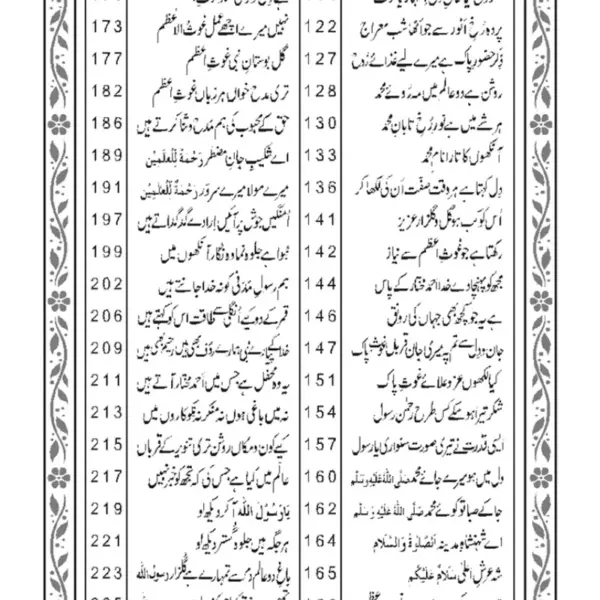 پردہ رُخِ انور سے جو اٹھا شب معراج 122
ذکرِ حضور پاک ہے میرے لیے غذائے رُوح 127
روشن ہے دو عالم میں مہ روئے محمد 128
ہر شے میں ہے نورِ رُخِ تابانِ محمد 130
آنکھوں کا تارا نامِ محمد 133
دِل کہتا ہے ہر وقت صفت اُن کی لکھا کر 136
اُس کو کب ہو گل و گلزار عزیز 141
رکھتا ہے جو غوثِ اعظم سے نیاز 142
مجھ کو پہنچا دے خدا احمد مختار کے پاس 144
ہے یہ جو کچھ بھی جہاں کی رونق 146
جان و دِل سے تم پہ میری جان قربان غوثِ پاک 147
کیا لکھوں عز و علائے غوثِ پاک 151
شکر تیرا ہو سکے کس طرح رحمٰن رسول 154
ایسی قدرت نے تیری صورت سنواری یا رسول 157
دِل میں ہو میرے جائے محمد صَلَّی اللہُ عَلَیْہِ وَسَلَّم 160
جا کے صبا تو کوئے محمد صَلَّی اللہُ عَلَیْہِ وَسَلَّم 162
اے شہنشاہِ مدینہ اَلصَّلٰوۃُ وَالسَّلَام 164
شہ عرشِ اعلیٰ سَلَامٌ عَلَیْکُم 165
نہیں میرے اچھے عمل غوثُ الاعظم 173
گل بوستانِ نبی غوثِ اعظم 177
تری مدح خواں ہر زباں غوثِ اعظم 182
حق کے محبوب کی ہم مَدح و ثنا کرتے ہیں 186
اے شکیبِ جانِ مضطر رَحْمَۃٌ لِّلْعٰلَمِیْن 189
میرے مولا میرے سرور رَحْمَۃٌ لِّلْعٰلَمِیْن 191
اُمنگیں جوش پر آئیں اِرادے گدگداتے ہیں 197
ہوا ہے جلوہ نما وہ نگار آنکھوں میں 199
ہم رسولِ مَدَنی کو نہ خدا جانتے ہیں 202
قمر کے دو کیے اُنگلی سے طاقت اس کو کہتے ہیں 206
خدا کے پیارے نبی ہمارے رؤف بھی ہیں رحیم بھی ہیں 209
یہ وہ محفل ہے جس میں احمد مختار آتے ہیں 211
نہ میں باغی ہوں نہ منکر نہ نِکوکاروں میں 213
کیے کون و مکاں روشن تری تنویر کے قرباں 215
عالم میں کیا ہے جس کی کہ تجھ کو خبر نہیں 217
یَارَسُوْلَ اللہ آ کر دیکھ لو 219
ہر جگہ ہیں جلوہ گُستر دیکھ لو 221
باغِ دو عالم دم سے تمہارے ہے گلزار رسولَ اللہ 223